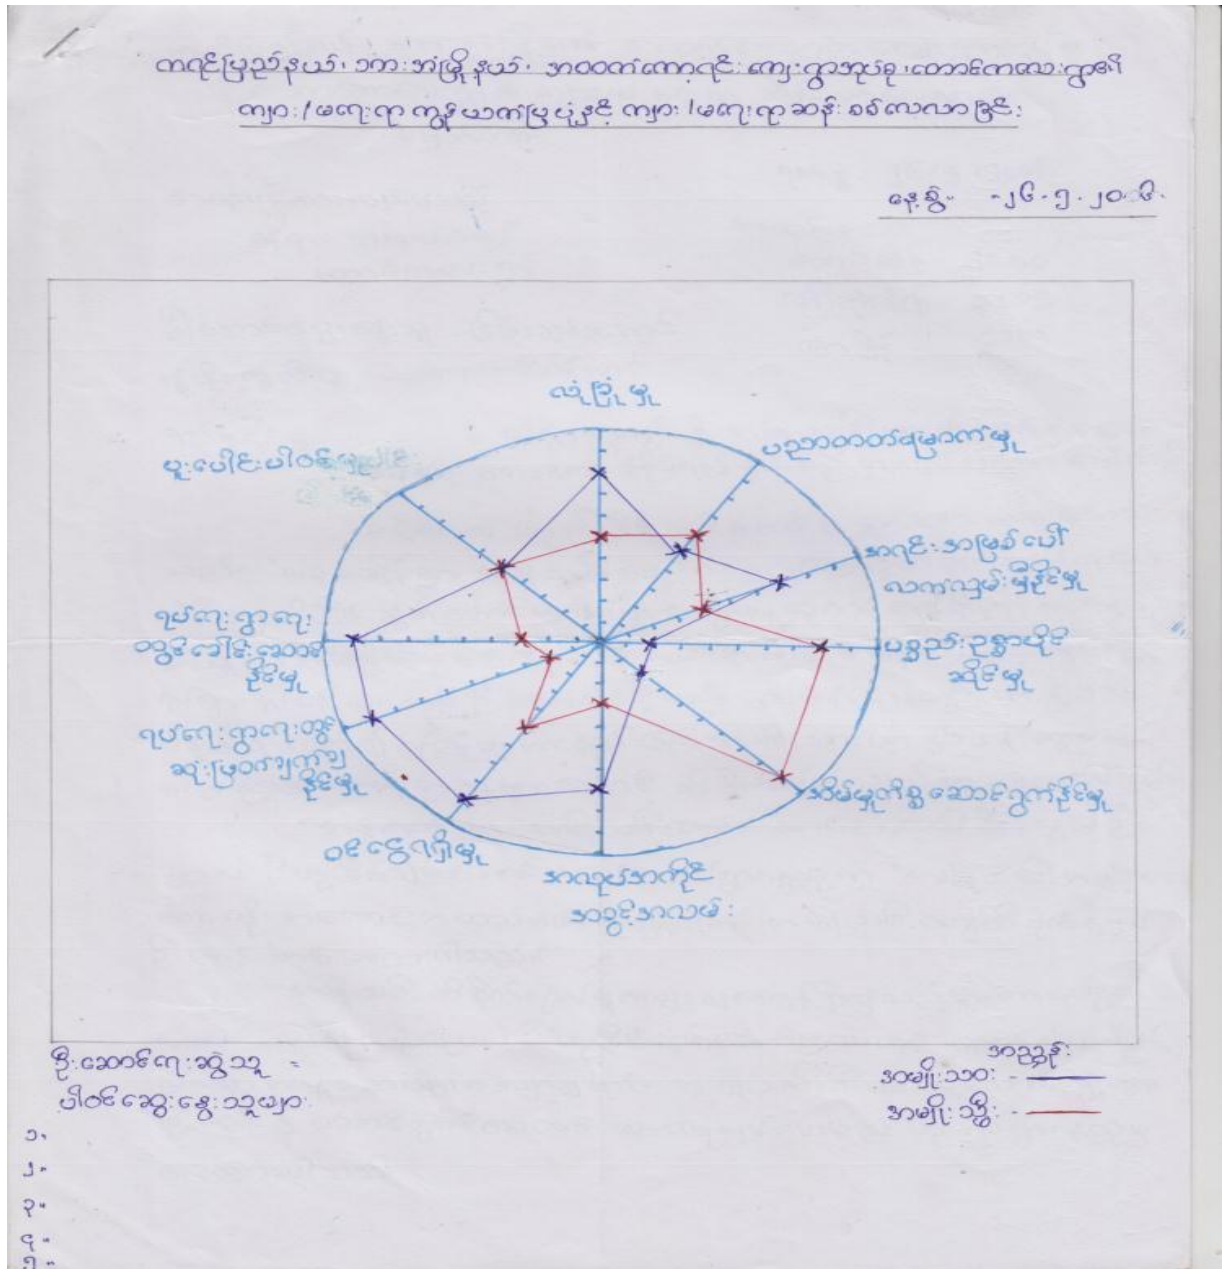 ကရင်ပြည်နယ်၊ ဘားအံမြို့နယ်၊ အဝတ်ကော့ရင်းကျေးရွာအုပ်စု၊ တောင်ကလေးရွာ၏
ကျား/မရေးရာ ကွန်ယက်ပြပုံနှင့် ကျား/မရေးရာဆန်းစစ်လေလာခြင်း
နေ့စွဲ- -၂၆.၅.၂၀၁၆.
လုံခြုံမှု
ပညာတတ်မြောက်မှု
အရင်းအမြစ်ပေါ်
လက်လှမ်းမှီနိုင်မှု
ပစ္စည်းဥစ္စာပိုင်
ဆိုင်မှု
အိမ်မှုကိစ္စဆောင်ရွက်နိုင်မှု
အလုပ်အကိုင်
အခွင့်အလမ်း
ဝင်ငွေရရှိမှု
ရပ်ရေးရွာရေးတွင်
ဆုံးဖြတ်ချက်ချ
နိုင်မှု
ရပ်ရေးရွာရေး
တွင်ခေါင်းဆောင်
နိုင်မှု
ပူးပေါင်းပါဝင်မှု
ဦးဆောင်ရေးဆွဲသူ =
ပါဝင်ဆွေးနွေးသူများ
၁.
၂.
၃.
၄.
၅.
အညွှန်း
အမျိုးသား -
အမျိုးသ္မီး -